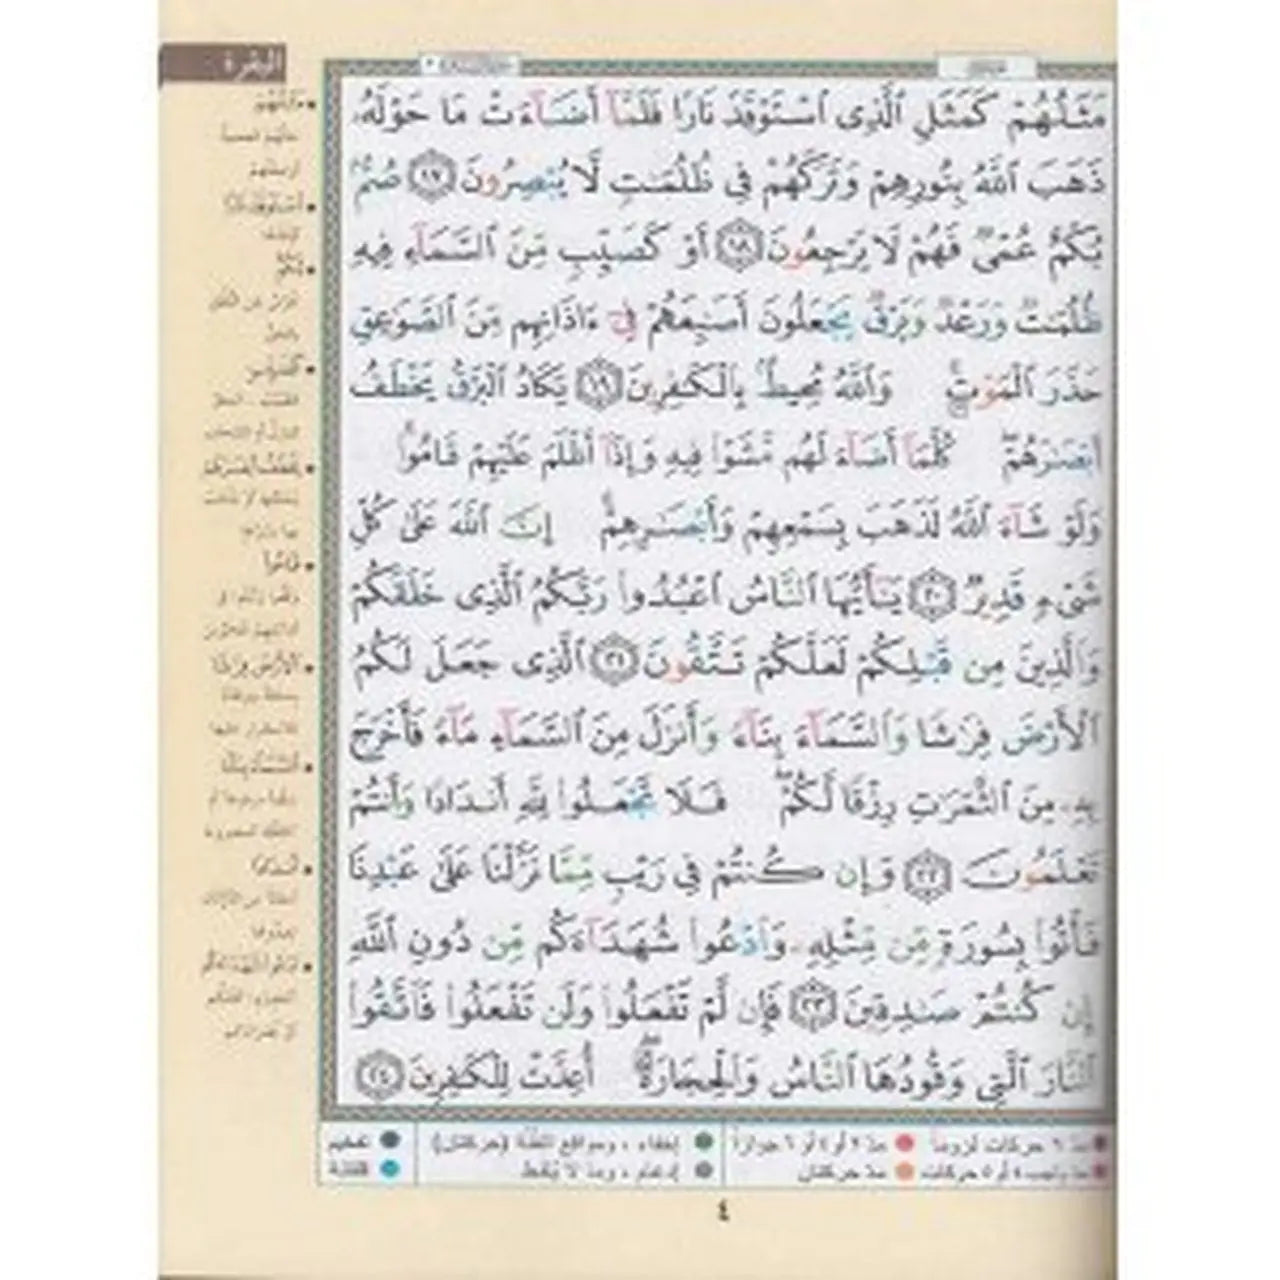 البقرة
مَثَلُهُمْ كَمَثَلِ ٱلَّذِى ٱسْتَوْقَدَ نَارًا فَلَمَّآ أَضَآءَتْ مَا حَوْلَهُۥ
ذَهَبَ ٱللَّهُ بِنُورِهِمْ وَتَرَكَهُمْ فِى ظُلُمَـٰتٍ لَّا يُبْصِرُونَ ١٧ صُمٌّۢ
بُكْمٌ عُمْىٌ فَهُمْ لَا يَرْجِعُونَ ١٨ أَوْ كَصَيِّبٍ مِّنَ ٱلسَّمَآءِ فِيهِ
ظُلُمَـٰتٌ وَرَعْدٌ وَبَرْقٌ يَجْعَلُونَ أَصَـٰبِعَهُمْ فِىٓ ءَاذَانِهِم مِّنَ ٱلصَّوَٰعِقِ
حَذَرَ ٱلْمَوْتِ ۚ وَٱللَّهُ مُحِيطٌۢ بِٱلْكَـٰفِرِينَ ١٩ يَكَادُ ٱلْبَرْقُ يَخْطَفُ
أَبْصَـٰرَهُمْ ۖ كُلَّمَآ أَضَآءَ لَهُم مَّشَوْا۟ فِيهِ وَإِذَآ أَظْلَمَ عَلَيْهِمْ قَامُوا۟ ۚ
وَلَوْ شَآءَ ٱللَّهُ لَذَهَبَ بِسَمْعِهِمْ وَأَبْصَـٰرِهِمْ ۚ إِنَّ ٱللَّهَ عَلَىٰ كُلِّ
شَىْءٍ قَدِيرٌ ٢٠ يَـٰٓأَيُّهَا ٱلنَّاسُ ٱعْبُدُوا۟ رَبَّكُمُ ٱلَّذِى خَلَقَكُمْ
وَٱلَّذِينَ مِن قَبْلِكُمْ لَعَلَّكُمْ تَتَّقُونَ ٢١ ٱلَّذِى جَعَلَ لَكُمُ
ٱلْأَرْضَ فِرَٰشًا وَٱلسَّمَآءَ بِنَآءً وَأَنزَلَ مِنَ ٱلسَّمَآءِ مَآءً فَأَخْرَجَ
بِهِۦ مِنَ ٱلثَّمَرَٰتِ رِزْقًا لَّكُمْ ۖ فَلَا تَجْعَلُوا۟ لِلَّهِ أَندَادًا وَأَنتُمْ
تَعْلَمُونَ ٢٢ وَإِن كُنتُمْ فِى رَيْبٍ مِّمَّا نَزَّلْنَا عَلَىٰ عَبْدِنَا
فَأْتُوا۟ بِسُورَةٍ مِّن مِّثْلِهِۦ وَٱدْعُوا۟ شُهَدَآءَكُم مِّن دُونِ ٱللَّهِ
إِن كُنتُمْ صَـٰدِقِينَ ٢٣ فَإِن لَّمْ تَفْعَلُوا۟ وَلَن تَفْعَلُوا۟ فَٱتَّقُوا۟
ٱلنَّارَ ٱلَّتِى وَقُودُهَا ٱلنَّاسُ وَٱلْحِجَارَةُ ۖ أُعِدَّتْ لِلْكَـٰفِرِينَ ٢٤
مَثَلُهُمْ
اسْتَوْقَدَ نَارًا
بُكْمٌ
قَامُوا
الأَرْضَ فِرَاشًا
السَّمَاءَ بِنَاءً
أَنْدَادًا
ادْعُوا شُهَدَاءَكُمْ
مدّ ٦ حركات لزوماً مدّ ٢ أو ٤ أو ٦ جوازاً إخفاء ، ومواقع الغنّة (حركتان) تفخيم
مدّ واجب ٤ أو ٥ حركات مدّ حركتان إدغام ، وما لا يُلفظ قلقلة
٤